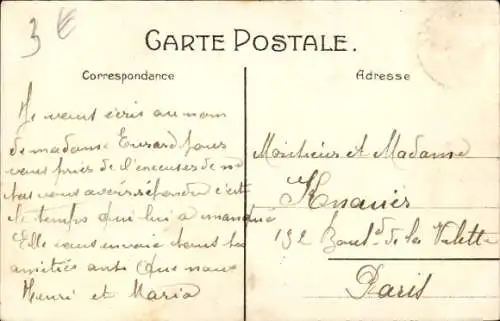 3 €
CARTE POSTALE.
Correspondance
Adresse
Je vous écris au nom
de madame Eurard pour
vous priés de l'excuses de ne
pas vous avoir répondu c'est
le temps qui lui a manqué
Elle vous envoie tous ses
amitiés ansi que nous
Henri et Maria
Monsieur et Madame
192 Boul d de la Villette
Paris